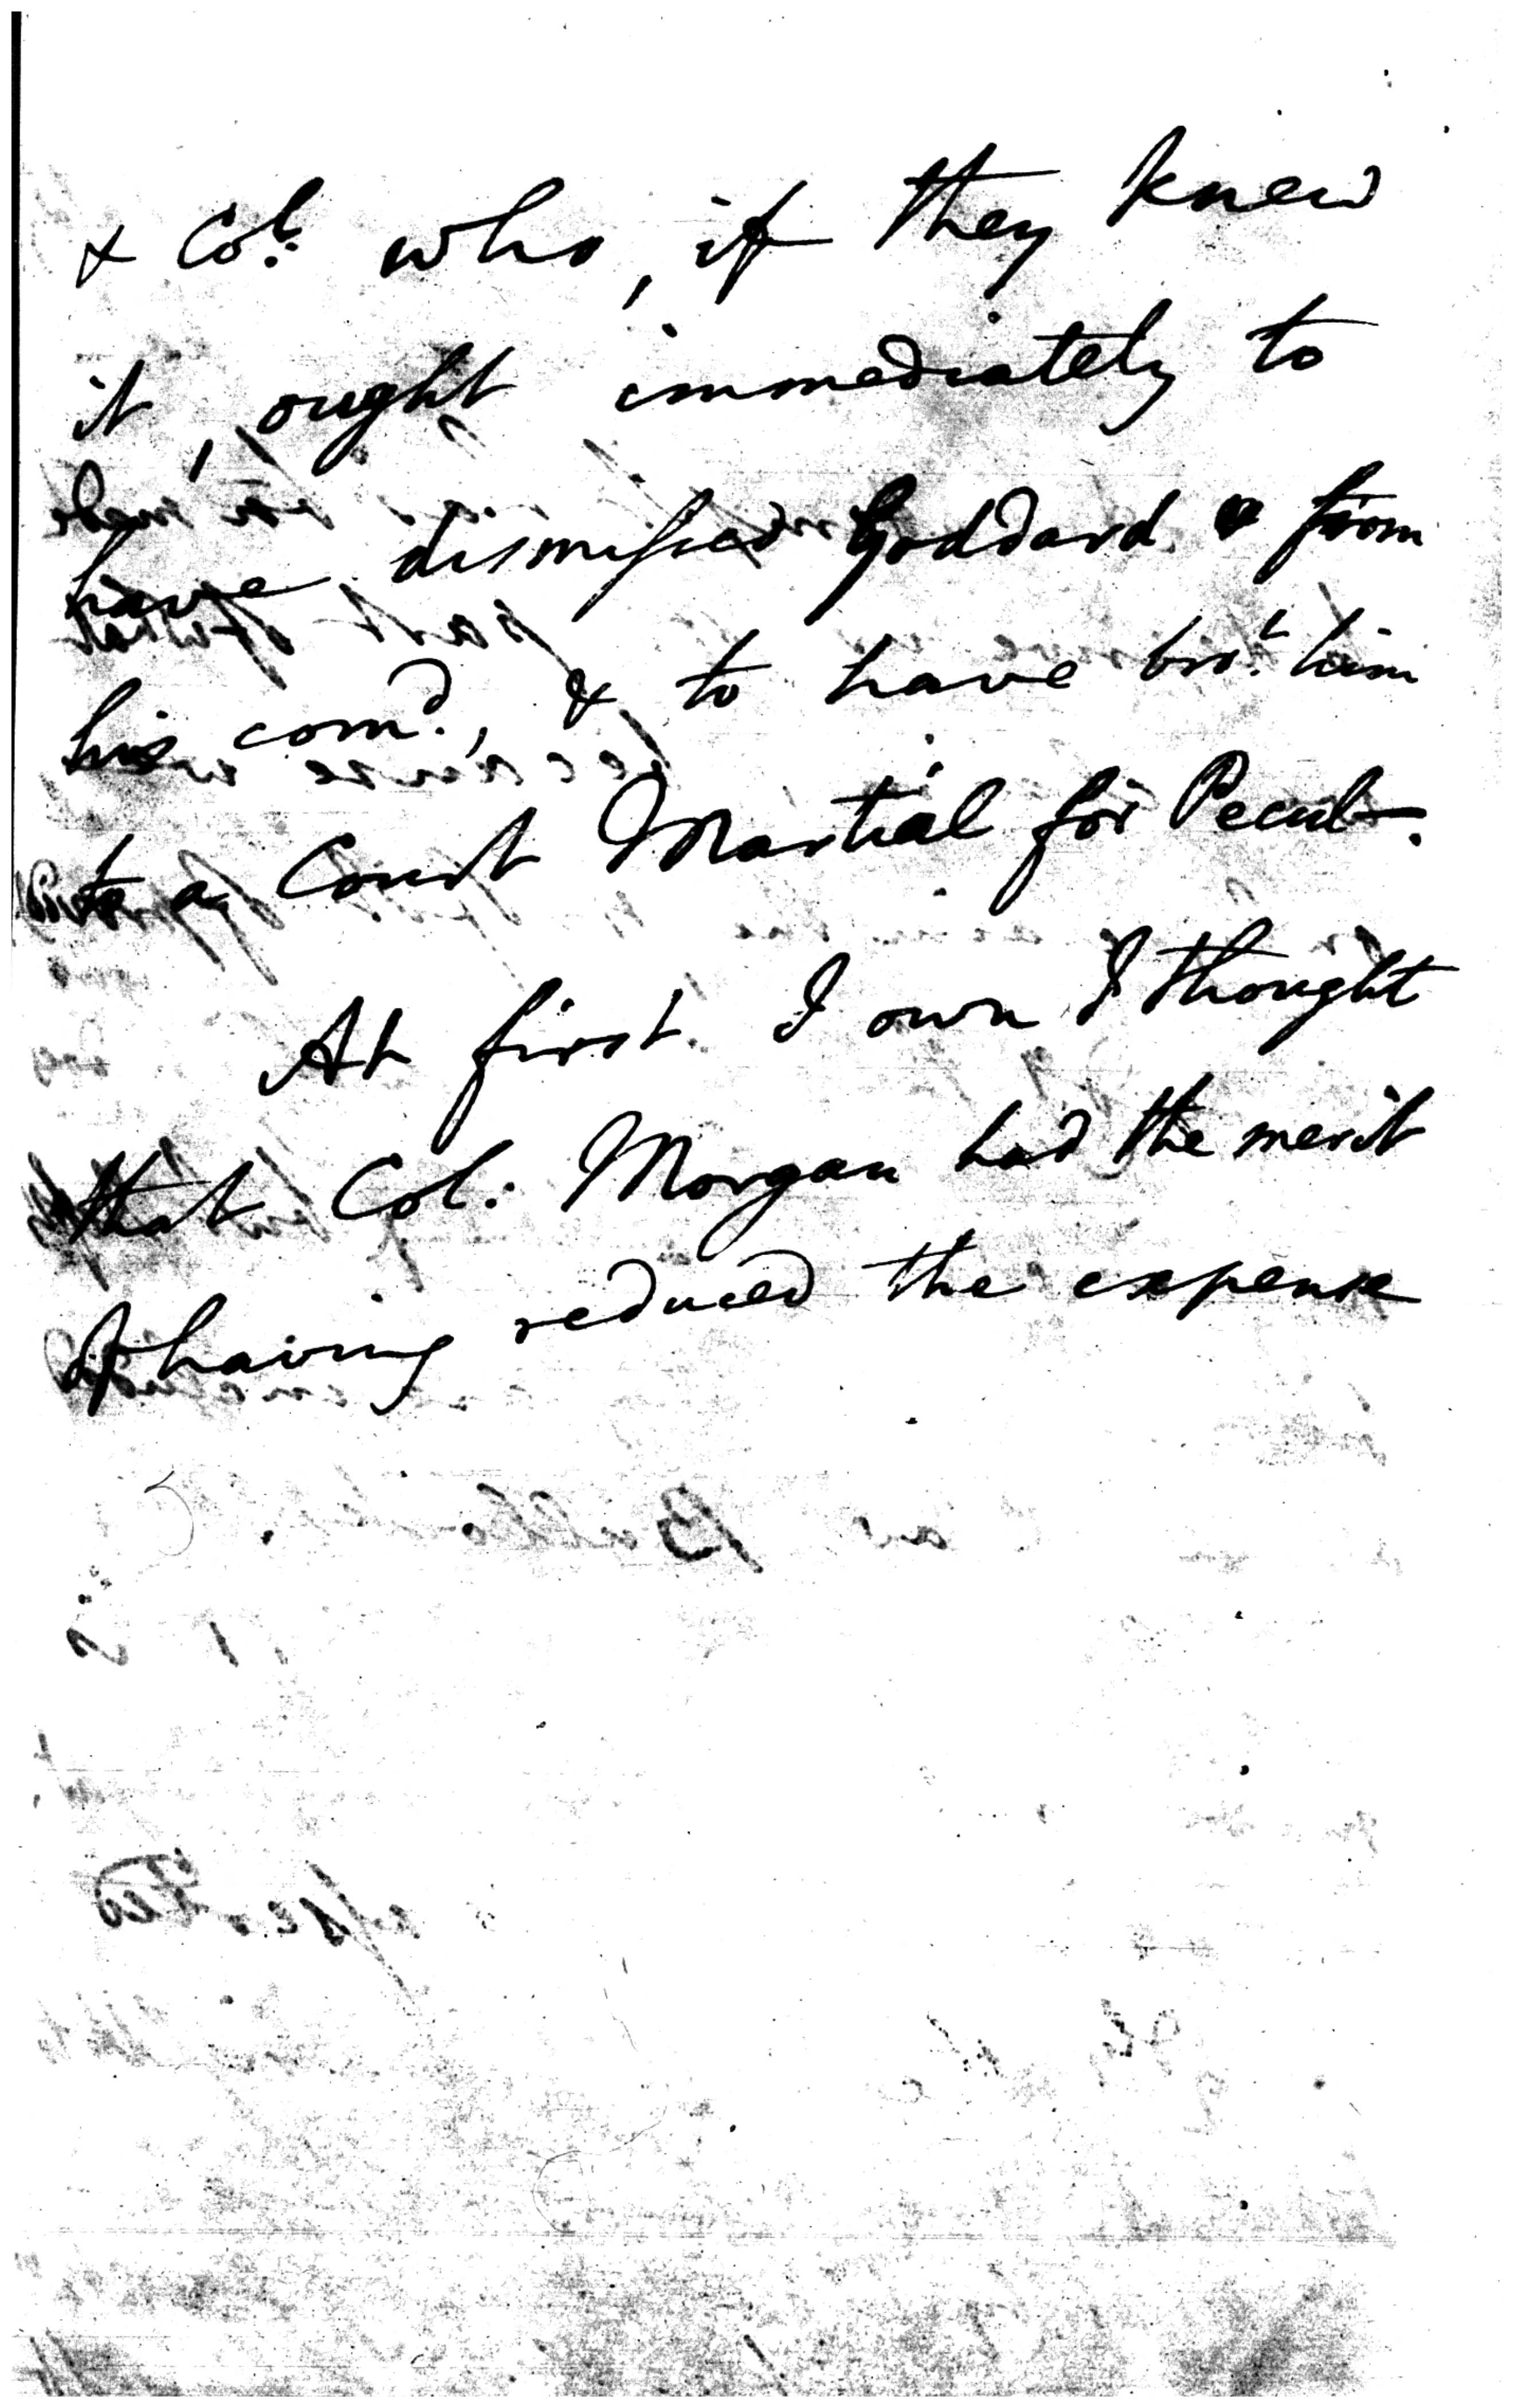 & Col: who, if they knew
it, ought immediately to
have dismissed Goddard from
his comd:, & to have brot: him
to a Court Martial for Pecul-.
At first I own I thought
that Col: Morgan had the merit
of having reduced the expense